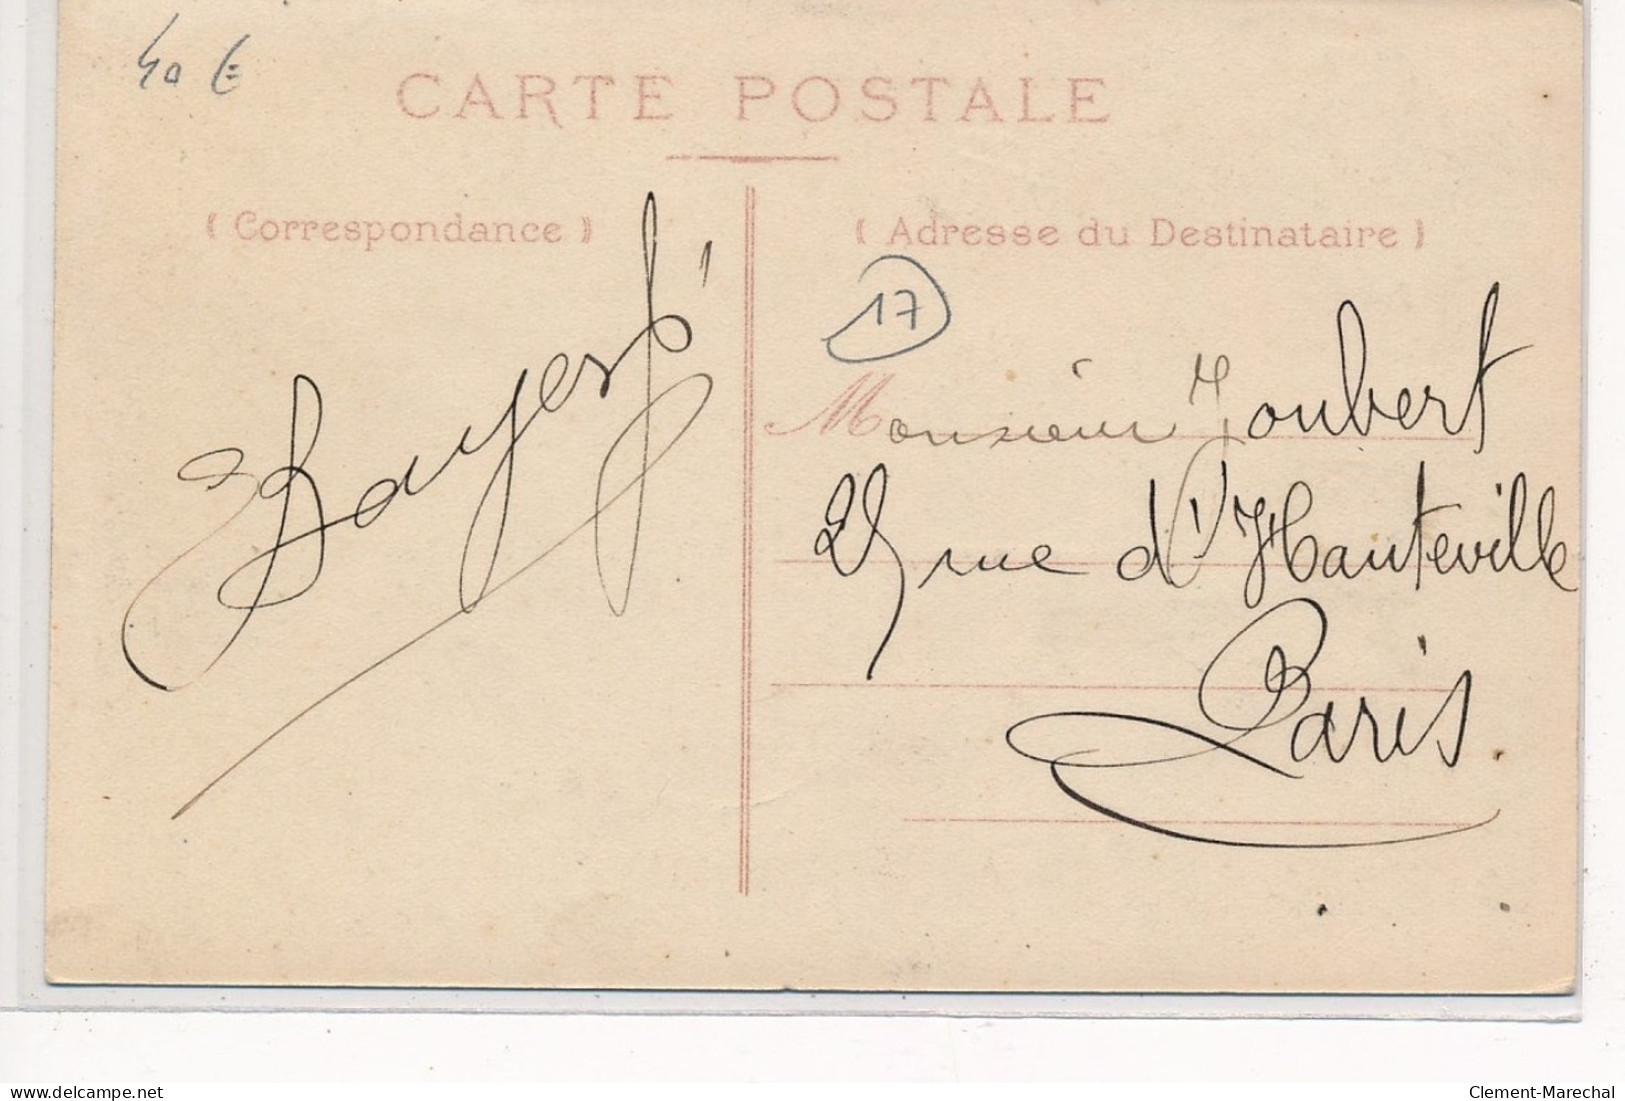 40 €
CARTE POSTALE
( Correspondance )
( Adresse du Destinataire )
17
Monsieur Joubert
25 rue d'Hauteville
Paris
delcampe.net
Clement-Marechal